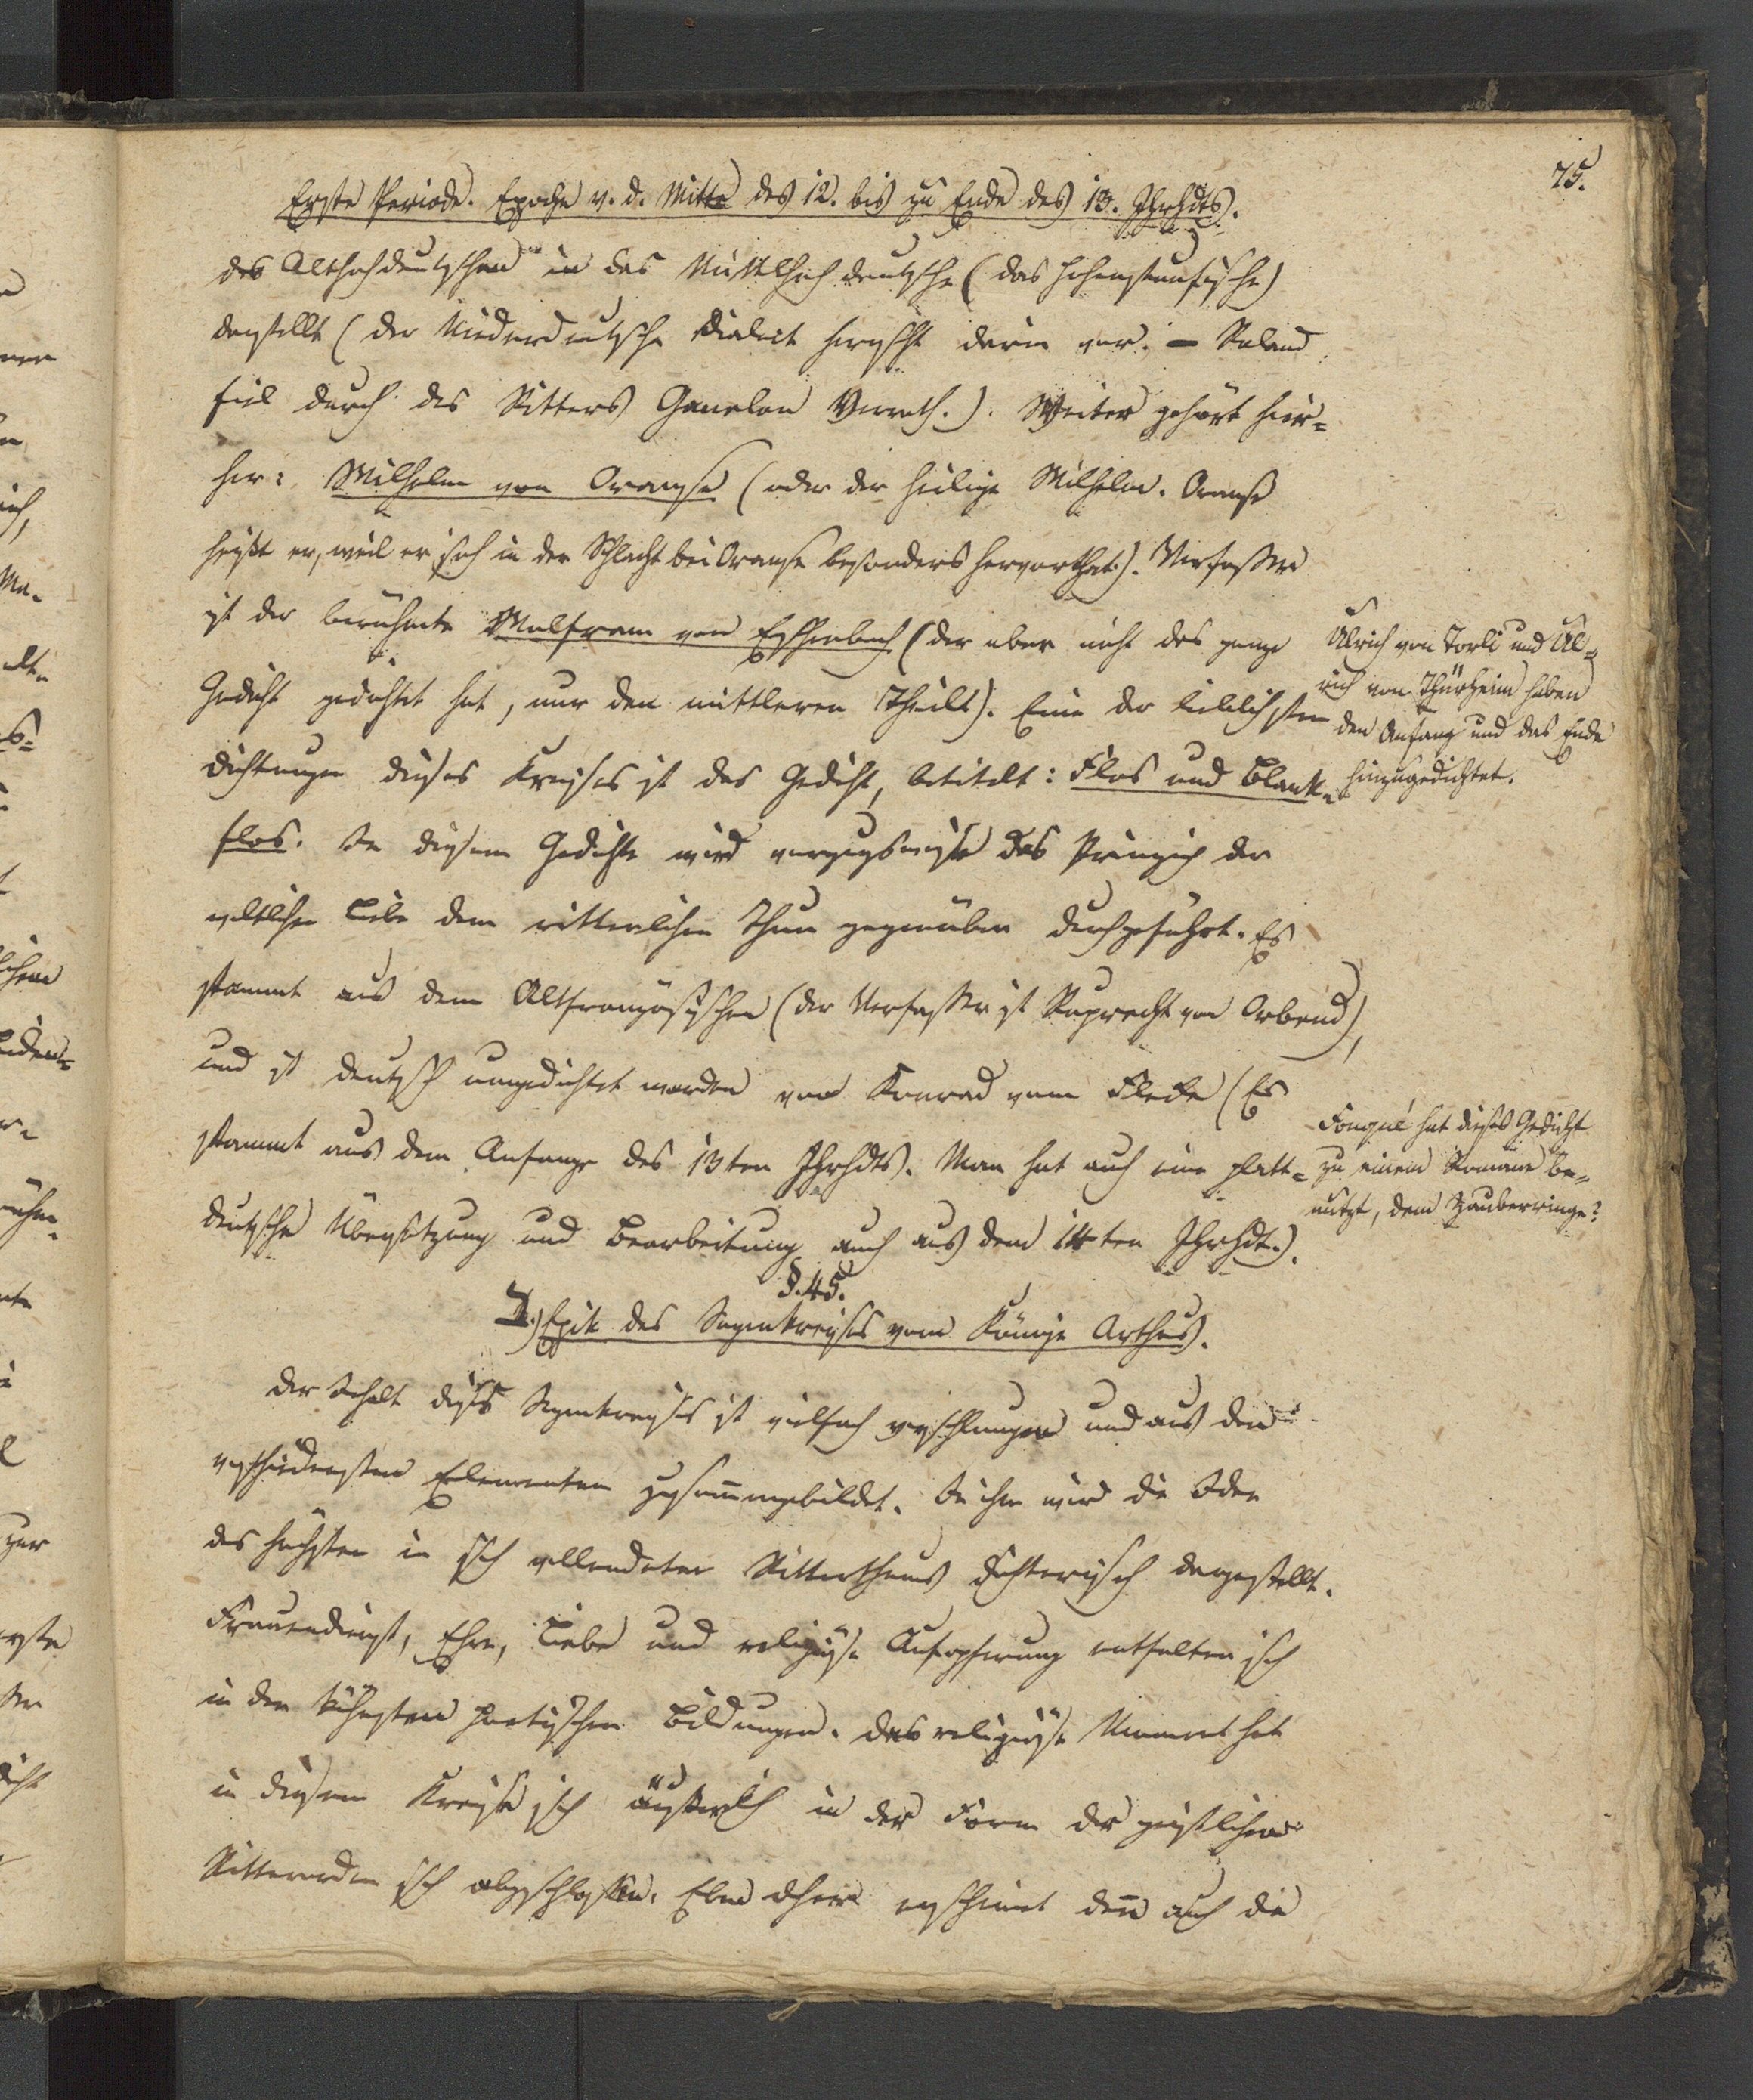 75.
Erste Periode. Epoche v. d. Mitte des 12. bis zu Ende des 13. Jhrhdts.
des Althochdeutschen in das Mittelhochdeutsche (das hohenstaufische)
darstellt (der Niederdeutsche Dialect herrscht darin vor. – Roland
fiel durch des Ritters Ganelon Verrath.). Weiter gehört hier-
her: Wilhelm von Oranse (oder der heilige Wilhelm. Oranse
heißt er, weil er sich in der Schlacht bei Oranse besonders hervorthat.). Verfasser
ist der berühmte Wolfram von Eschenbach (der aber nicht das ganze
Gedicht gedichtet hat, nur den mittleren Theil). Eine der lieblichsten
Dichtungen dieses Kreises ist das Gedicht, betitelt: Flos und Blank-
flos. In diesem Gedichte wird vorzugsweise das Princip der
weltlichen Liebe dem ritterlichen Thun gegenüber durchgeführt. Es
stammt aus dem Altfranzösischen (der Verfasser ist Ruprecht von Orbend),
und ist deutsch umgedichtet worden von Konrad vom Flecke (Es
stammt aus dem Anfange des 13ten Jhrhdts. Man hat auch eine platt-
deutsche Übersetzung und Bearbeitung auch aus dem 14ten Jhrhdt.).
Ulrich von Torli und Ul-
rich von Thürheim haben
den Anfang und das Ende
hinzugedichtet.
Fouqué hat dieses Gedicht
zu einem Romane be-
nutzt, dem Zauberringe?
§. 45.
2.) Epik des Sagenkreises vom Könige Arthus.
Der Inhalt dieses Sagenkreises ist vielfach verschlungen und aus den
verschiedensten Elementen zusammengebildet. In ihm wird die Idee
des höchsten in sich vollendeten Ritterthums dichterisch dargestellt.
Frauendienst, Ehre, Liebe und religiöse Aufopferung entfalten sich
in den kühnsten poetischen Bildungen. Das religiöse Moment hat
in diesem Kreise sich äußerlich in der Form der geistlichen
Ritterorden sich abgeschlossen. Eben daher erscheint denn auch die